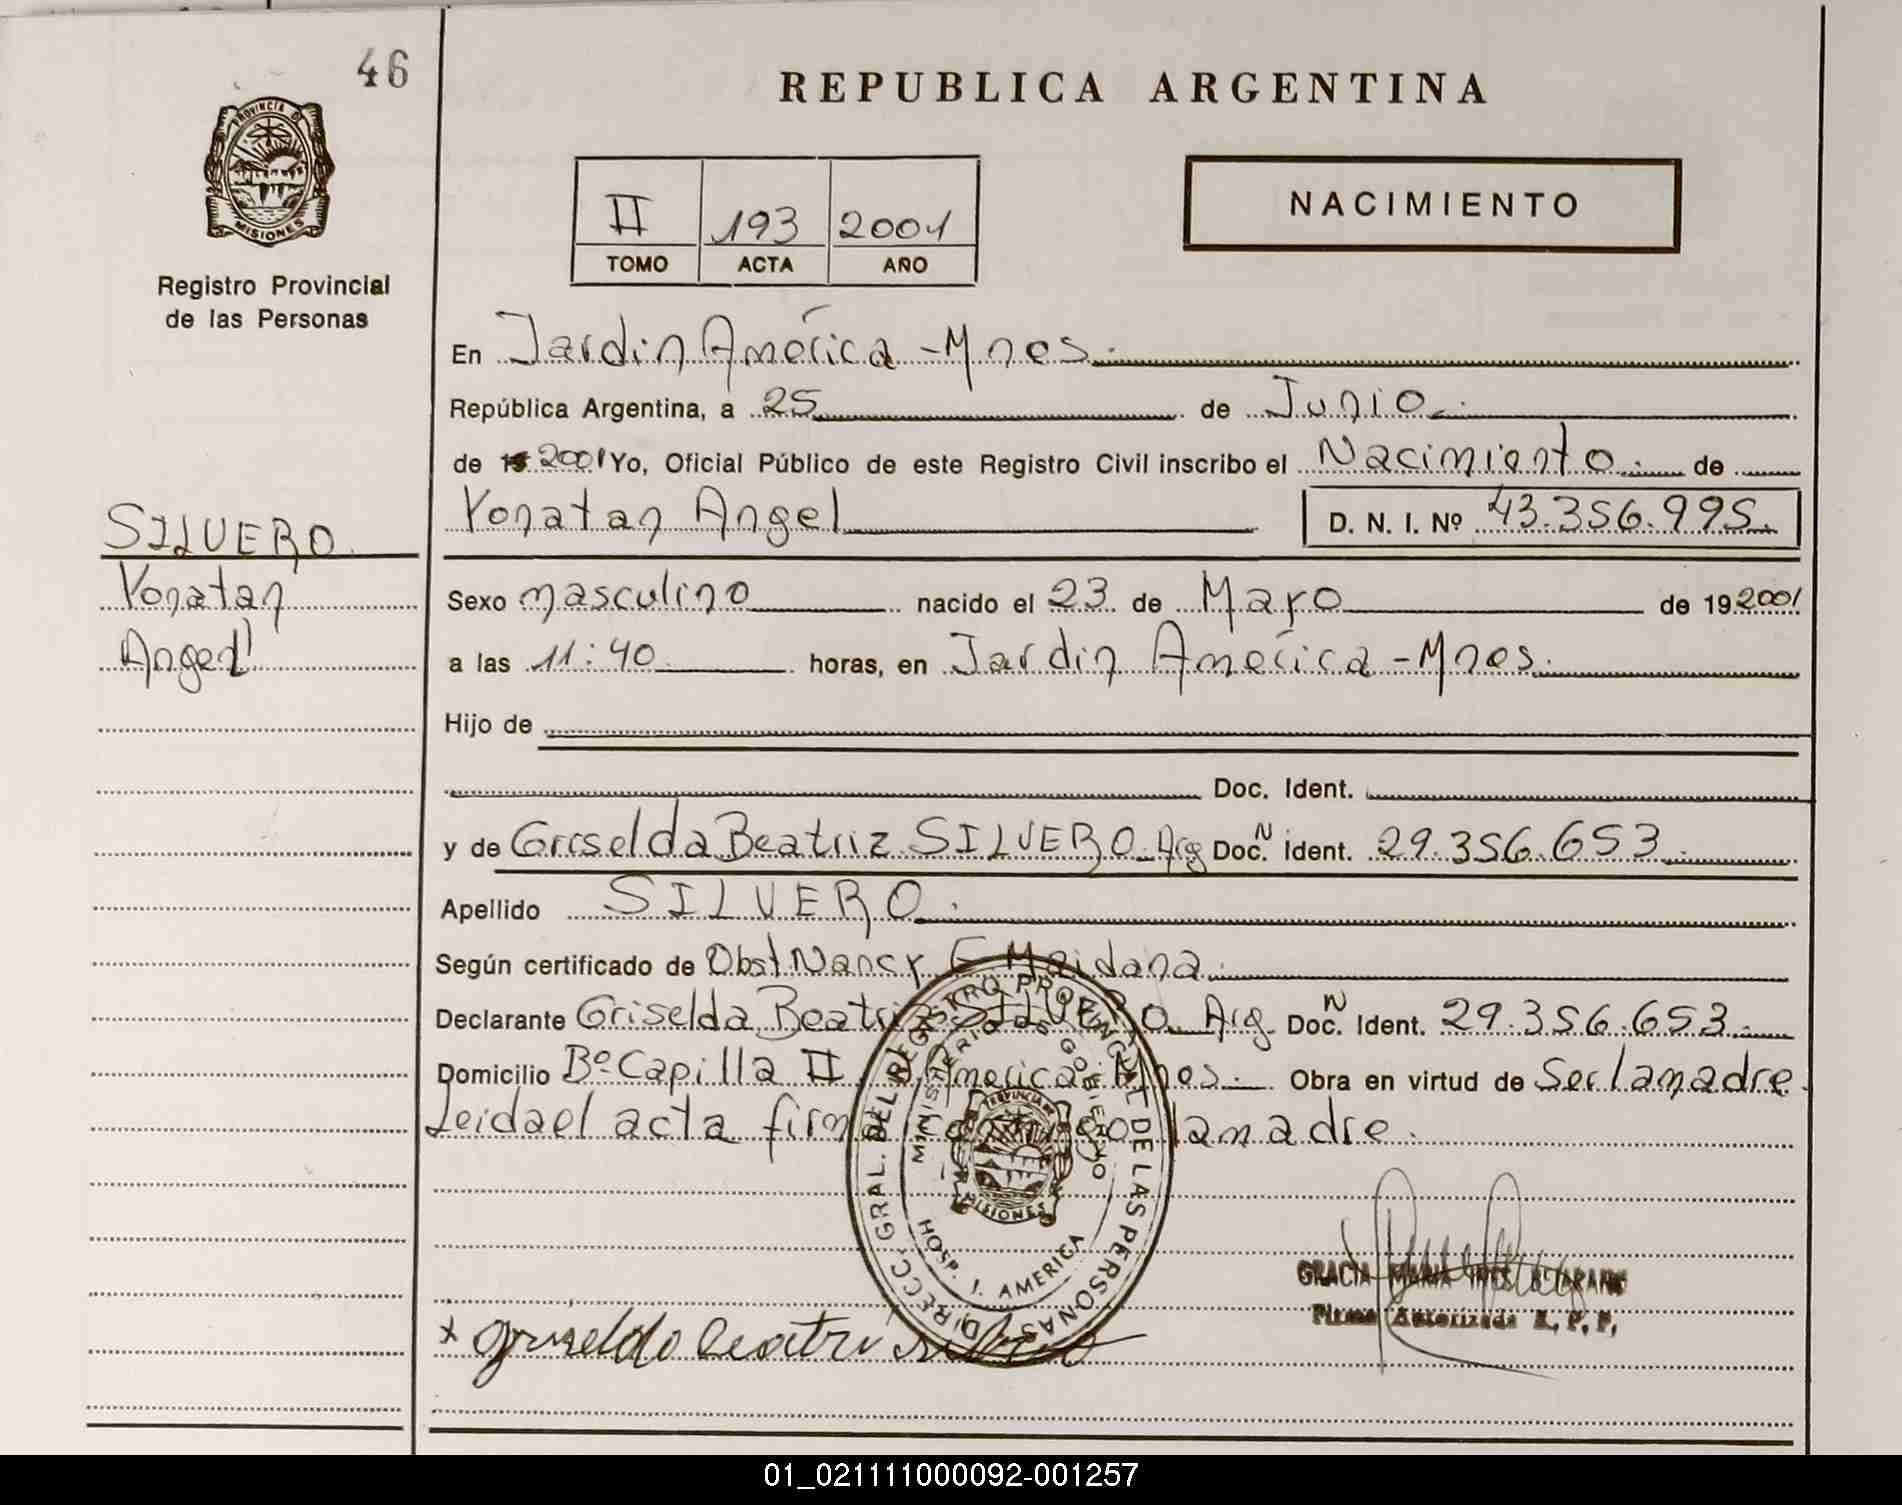 46
REPUBLICA ARGENTINA
PROVINCIA DE
MISIONES
Registro Provincial
de las Personas
II 193 2001
TOMO ACTA AÑO
NACIMIENTO
En Jardin América - Mnes.
República Argentina, a 25 de Junio.
de 19 2001 Yo, Oficial Público de este Registro Civil inscribo el Nacimiento de
Yonatan Angel D. N. I. Nº 43.356.995.
SILVERO
Yonatan
Angel
Sexo masculino nacido el 23 de Mayo de 19 2001
a las 11:40 horas, en Jardin América - Mnes.
Hijo de
Doc. Ident.
y de Griselda Beatriz SILVERO. Arg Doc. N Ident. 29.356.653.
Apellido SILVERO.
Según certificado de Obst Nancy E Maidana.
Declarante Griselda Beatriz SILVERO Arg. Doc. N Ident. 29.356.653.
Domicilio Bº Capilla II J. America Mnes. Obra en virtud de Ser la madre.
Leida el acta firma conmigo la madre.
DIRECC. GRAL. DEL REGISTRO PROVINCIAL DE LAS PERSONAS
MINISTERIO DE GOBIERNO
PROVINCIA DE
MISIONES
HOSP. J. AMERICA
GRACIA MARIA INES
Firma Autorizada R. P. P.
x Griselda Beatri Silvero
01_021111000092-001257